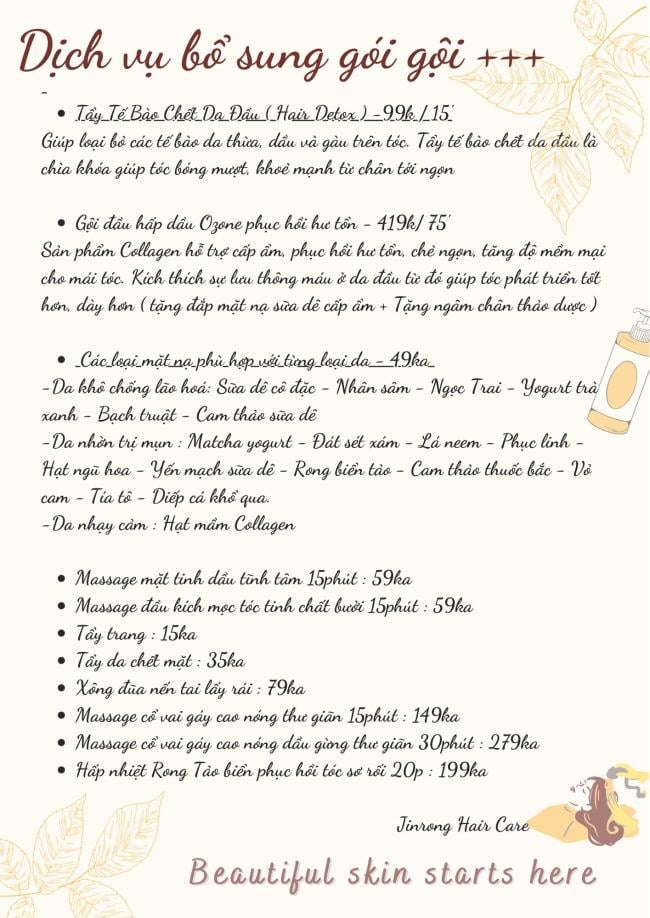 Dịch vụ bổ sung gói gội +++
-
• Tẩy Tế Bào Chết Da Đầu ( Hair Detox ) -99k / 15'
Giúp loại bỏ các tế bào da thừa, dầu và gàu trên tóc. Tẩy tế bào chết da đầu là
chìa khóa giúp tóc bóng mượt, khoẻ mạnh từ chân tới ngọn
• Gội đầu hấp dầu Ozone phục hồi hư tổn - 419k/ 75'
Sản phẩm Collagen hỗ trợ cấp ẩm, phục hồi hư tổn, chẻ ngọn, tăng độ mềm mại
cho mái tóc. Kích thích sự lưu thông máu ở da đầu từ đó giúp tóc phát triển tốt
hơn, dày hơn ( tặng đắp mặt nạ sữa dê cấp ẩm + Tặng ngâm chân thảo dược )
• Các loại mặt nạ phù hợp với từng loại da - 49ka
-Da khô chống lão hoá: Sữa dê cô đặc - Nhân sâm - Ngọc Trai - Yogurt trà
xanh - Bạch truật - Cam thảo sữa dê
-Da nhờn trị mụn : Matcha yogurt - Đất sét xám - Lá neem - Phục linh -
Hạt ngũ hoa - Yến mạch sữa dê - Rong biển tảo - Cam thảo thuốc bắc - Vỏ
cam - Tía tô - Diếp cá khổ qua.
-Da nhạy cảm : Hạt mầm Collagen
• Massage mặt tinh dầu tĩnh tâm 15phút : 59ka
• Massage đầu kích mọc tóc tinh chất bưởi 15phút : 59ka
• Tẩy trang : 15ka
• Tẩy da chết mặt : 35ka
• Xông đũa nến tai lấy rái : 79ka
• Massage cổ vai gáy cao nóng thư giãn 15phút : 149ka
• Massage cổ vai gáy cao nóng dầu gừng thư giãn 30phút : 279ka
• Hấp nhiệt Rong Tảo biển phục hồi tóc sơ rối 20p : 199ka
Jinrong Hair Care
Beautiful skin starts here